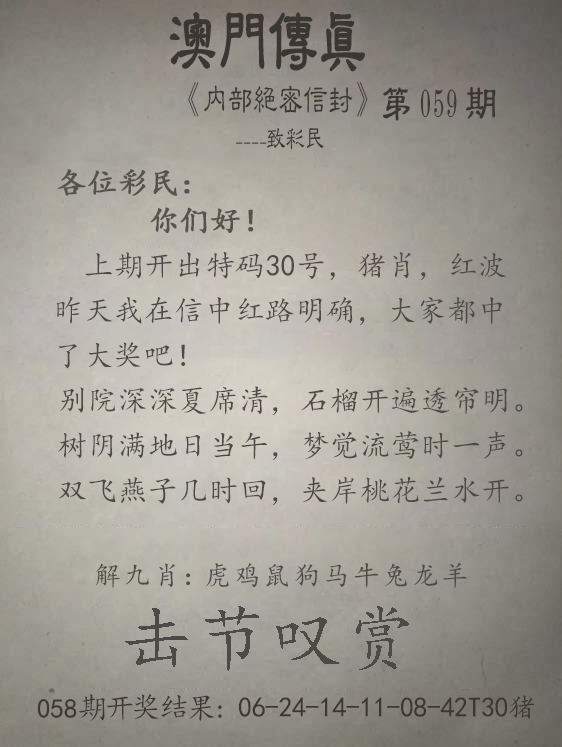 澳門傳眞
《内部絕密信封》第059期
----致彩民
各位彩民：
你们好！
上期开出特码30号，猪肖，红波
昨天我在信中红路明确，大家都中
了大奖吧！
别院深深夏席清，石榴开遍透帘明。
树阴满地日当午，梦觉流莺时一声。
双飞燕子几时回，夹岸桃花兰水开。
解九肖：虎鸡鼠狗马牛兔龙羊
击节叹赏
058期开奖结果：06-24-14-11-08-42T30猪